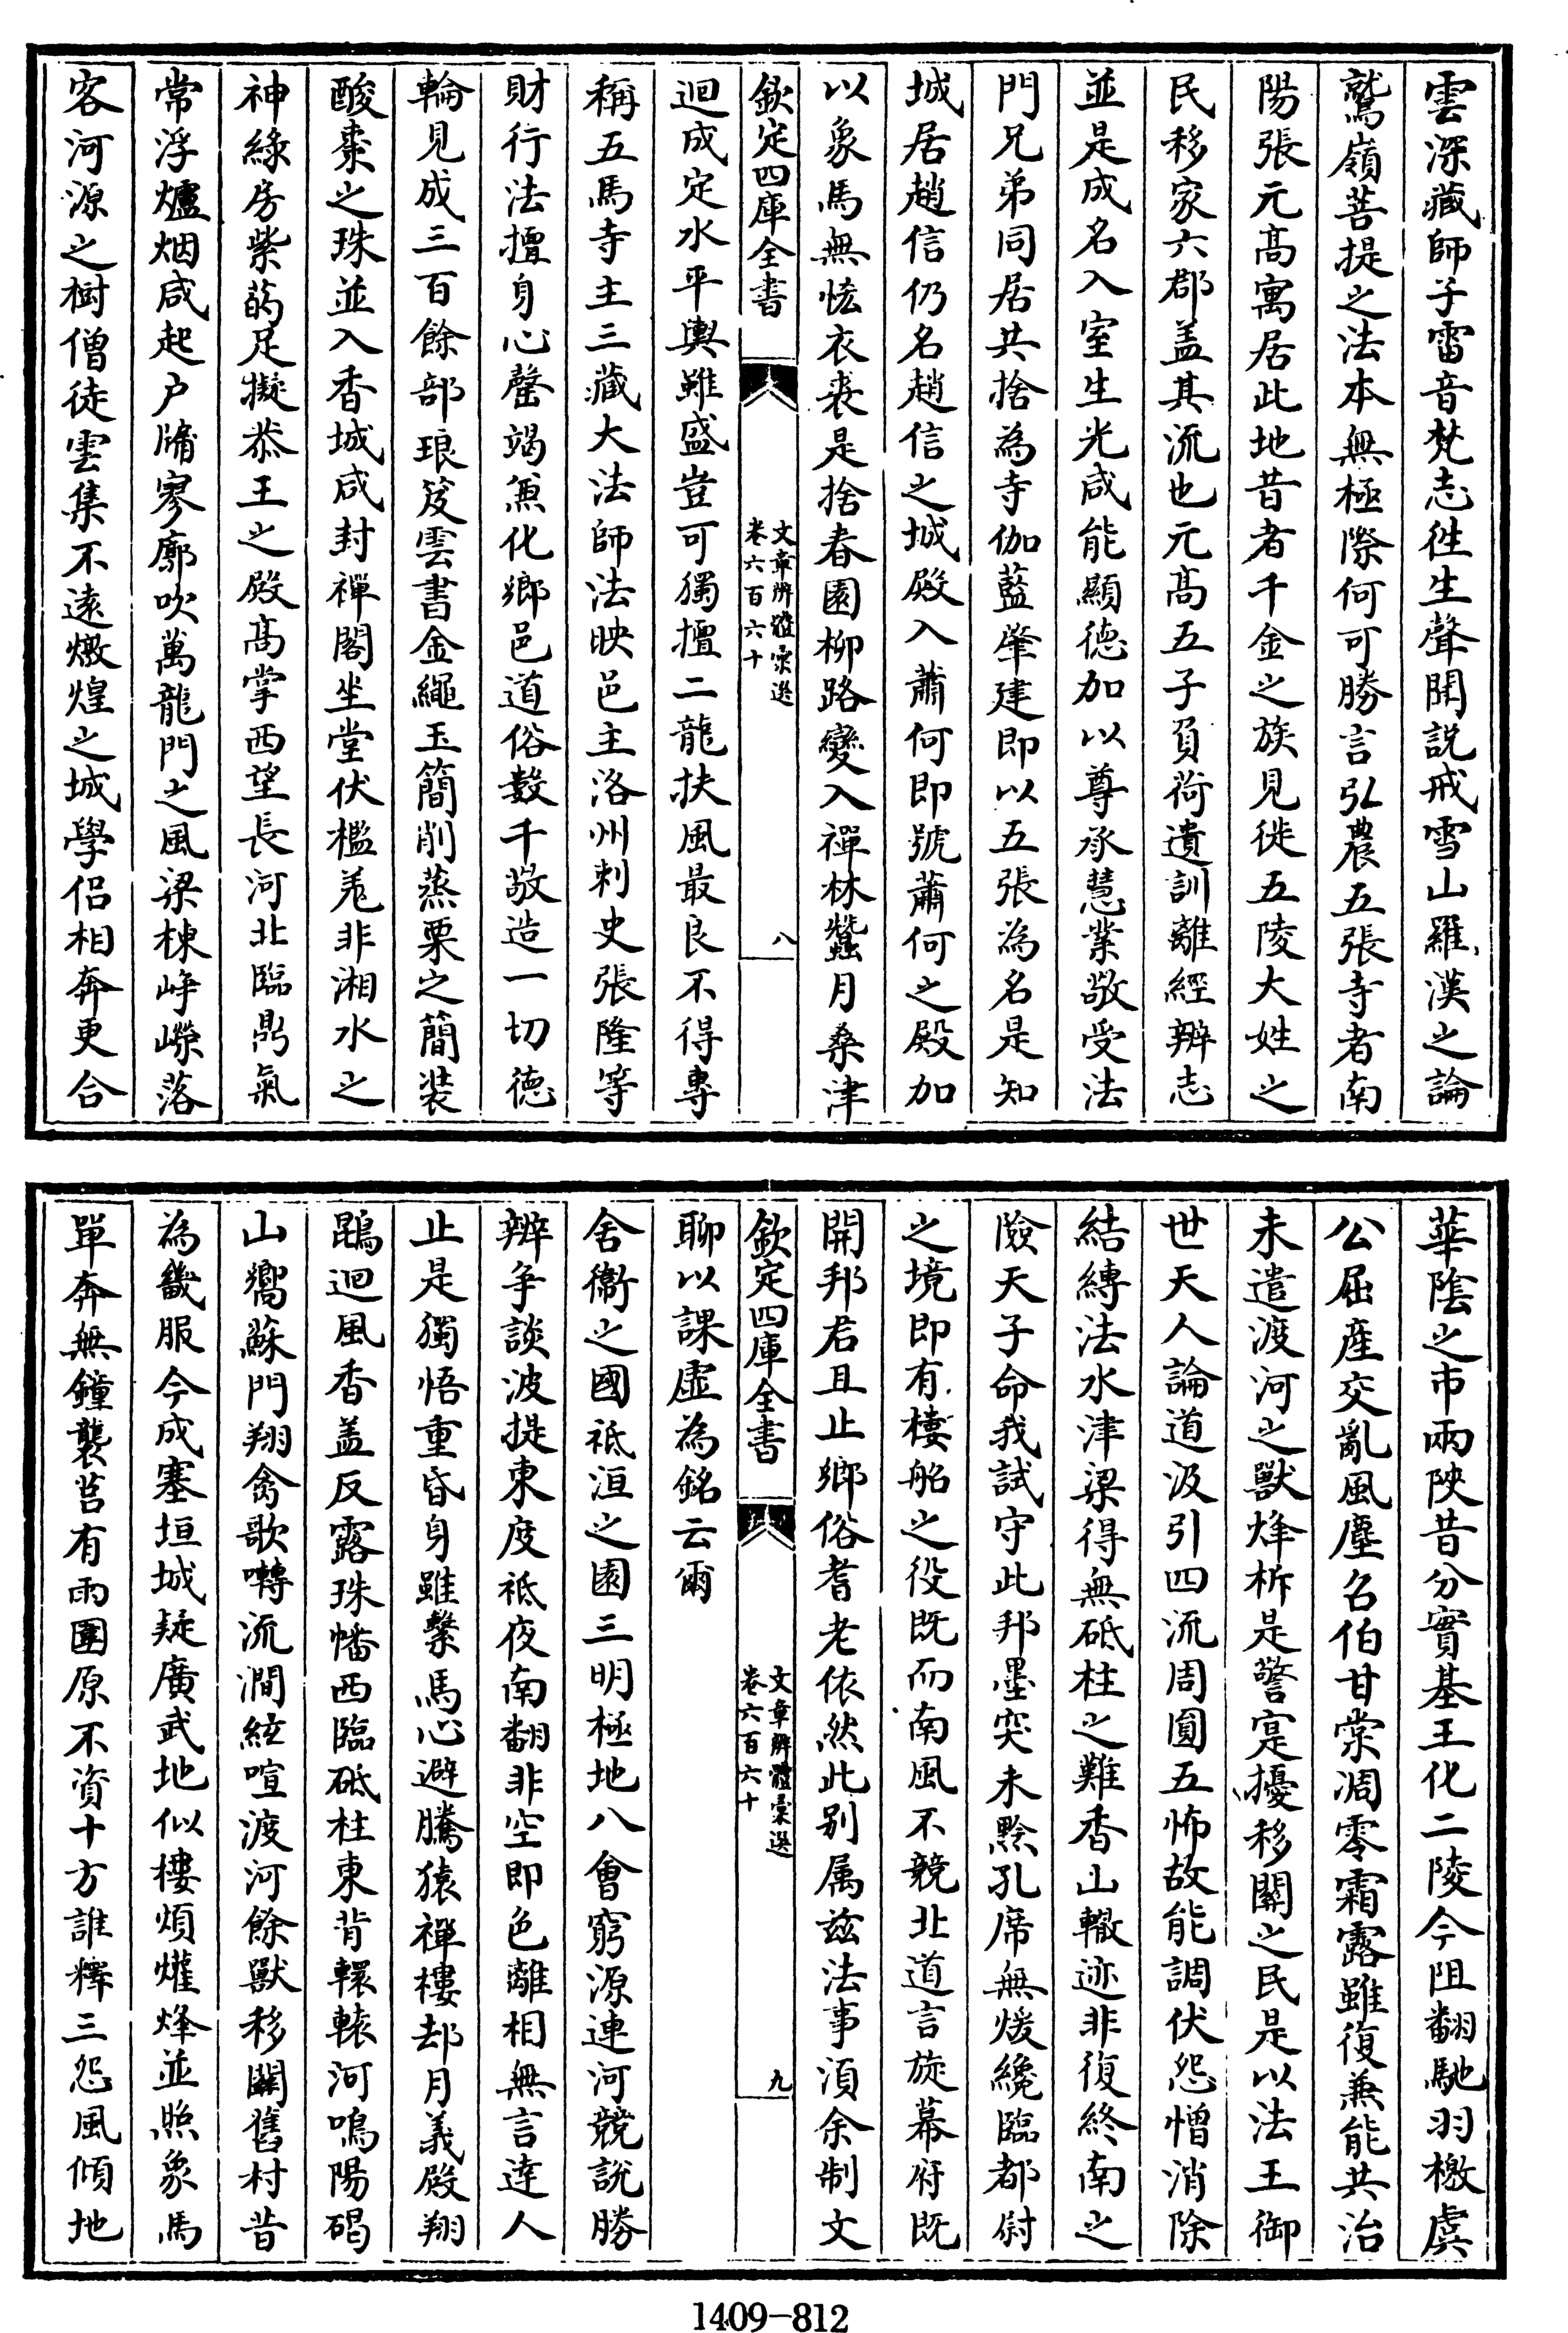 雲深藏師子雷音梵志徃生聲聞説戒雪山羅漢之論
鷲嶺菩提之法本無極際何可勝言弘農五張寺者南
陽張元髙寓居此地昔者千金之族見徙五陵大姓之
民移家六郡盖其流也元髙五子負荷遺訓離經辨志
並是成名入室生光咸能顯徳加以尊承慧業敬受法
門兄弟同居共捨為寺伽藍肇建即以五張為名是知
城居趙信仍名趙信之城殿入蕭何即號蕭何之殿加
以象馬無恡衣裘是捨春園柳路變入禪林蠶月桑津
欽定四庫全書
文章辨體彚選
卷六百六十
八
迴成定水平輿雖盛豈可獨擅二龍扶風最良不得專
稱五馬寺主三藏大法師法映邑主洛州刺史張隆等
財行法擅身心罄竭兼化鄉邑道俗數千敬造一切德
輪見成三百餘部琅笈雲書金繩玉簡削蒸栗之簡裝
酸棗之珠並入香城咸封禪閣坐堂伏檻羌非湘水之
神綠房紫菂足擬恭王之殿髙掌西望長河北臨鼎氣
常浮爐烟咸起户牖寥廓吹萬龍門之風梁棟崢嶸落
客河源之樹僧徒雲集不遠燉煌之城學侣相奔更合
華陰之市兩陜昔分實基王化二陵今阻翻馳羽檄虞
公屈産交亂風塵召伯甘棠凋零霜露雖復兼能共治
未遣渡河之獸烽柝是警寔擾移關之民是以法王御
世天人論道汲引四流周圓五怖故能調伏怨憎消除
結縛法水津梁得無砥柱之難香山轍迹非復終南之
險天子命我試守此邦墨突未黔孔席無煖纔臨都尉
之境即有樓船之役既而南風不競北道言旋幕府既
開邦君且止鄉俗耆老依然此别属兹法事湏余制文
欽定四庫全書
文章辨體彚選
卷六百六十
九
聊以課虚為銘云爾
舍衞之國祇洹之園三明極地八會窮源連河競說勝
辨争談波提東度祇夜南翻非空即色離相無言逹人
止是獨悟重昏身雖繫馬心避騰猿禪樓却月義殿翔
鵾迴風香盖反露珠幡西臨砥柱東背轘轅河鳴陽碣
山嚮蘇門翔禽歌囀流澗絃喧渡河餘獸移關舊村昔
為畿服今成塞垣城疑廣武地似樓煩爟烽並照象馬
單奔無鐘襲莒有雨圍原不資十方誰釋三怨風傾地
1409-812